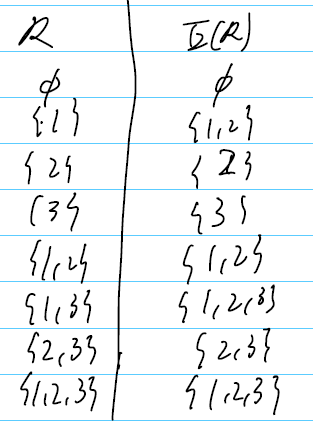 R Φ(R)
ϕ ϕ
{1} {1,2}
{2} {2}
{3} {3}
{1,2} {1,2}
{1,3} {1,2,3}
{2,3} {2,3}
{1,2,3} {1,2,3}